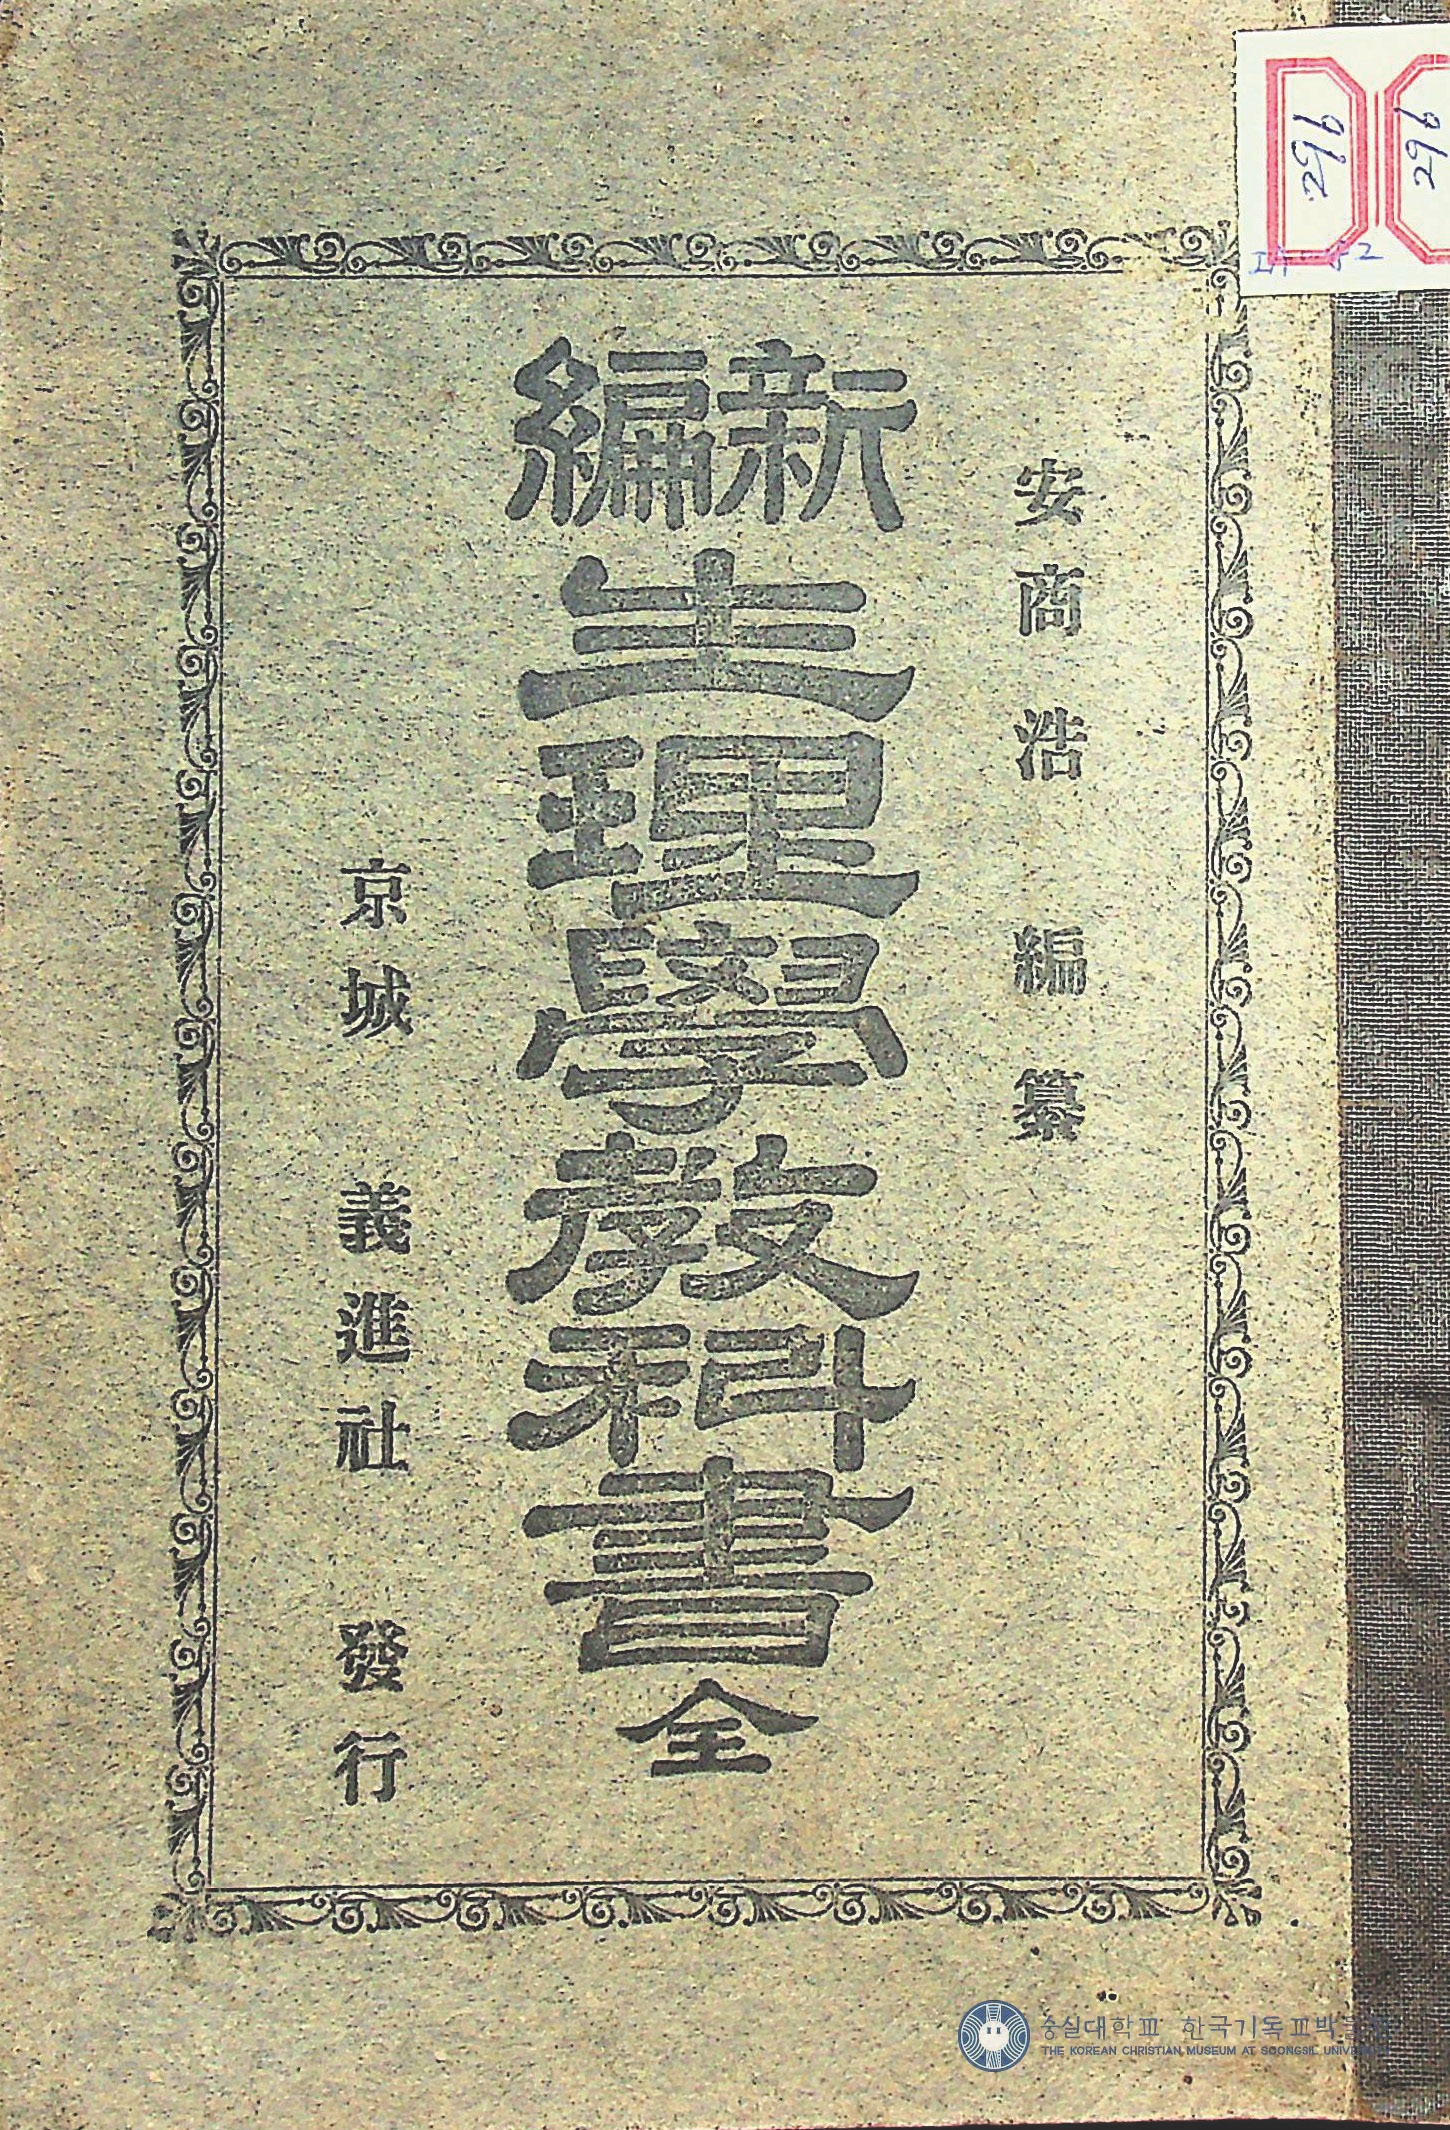 安商浩 編纂
新編
生理學教科書 全
京城 義進社 發行
296
296
숭실대학교 한국기독교박물관
THE KOREAN CHRISTIAN MUSEUM AT SOONGSIL UNIVERSITY